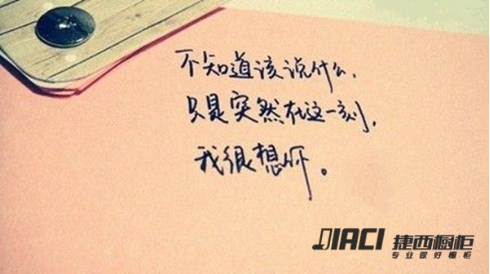 不知道该说什么,
只是突然在这一刻,
我很想你。
JIACI 捷西橱柜
专业做好橱柜